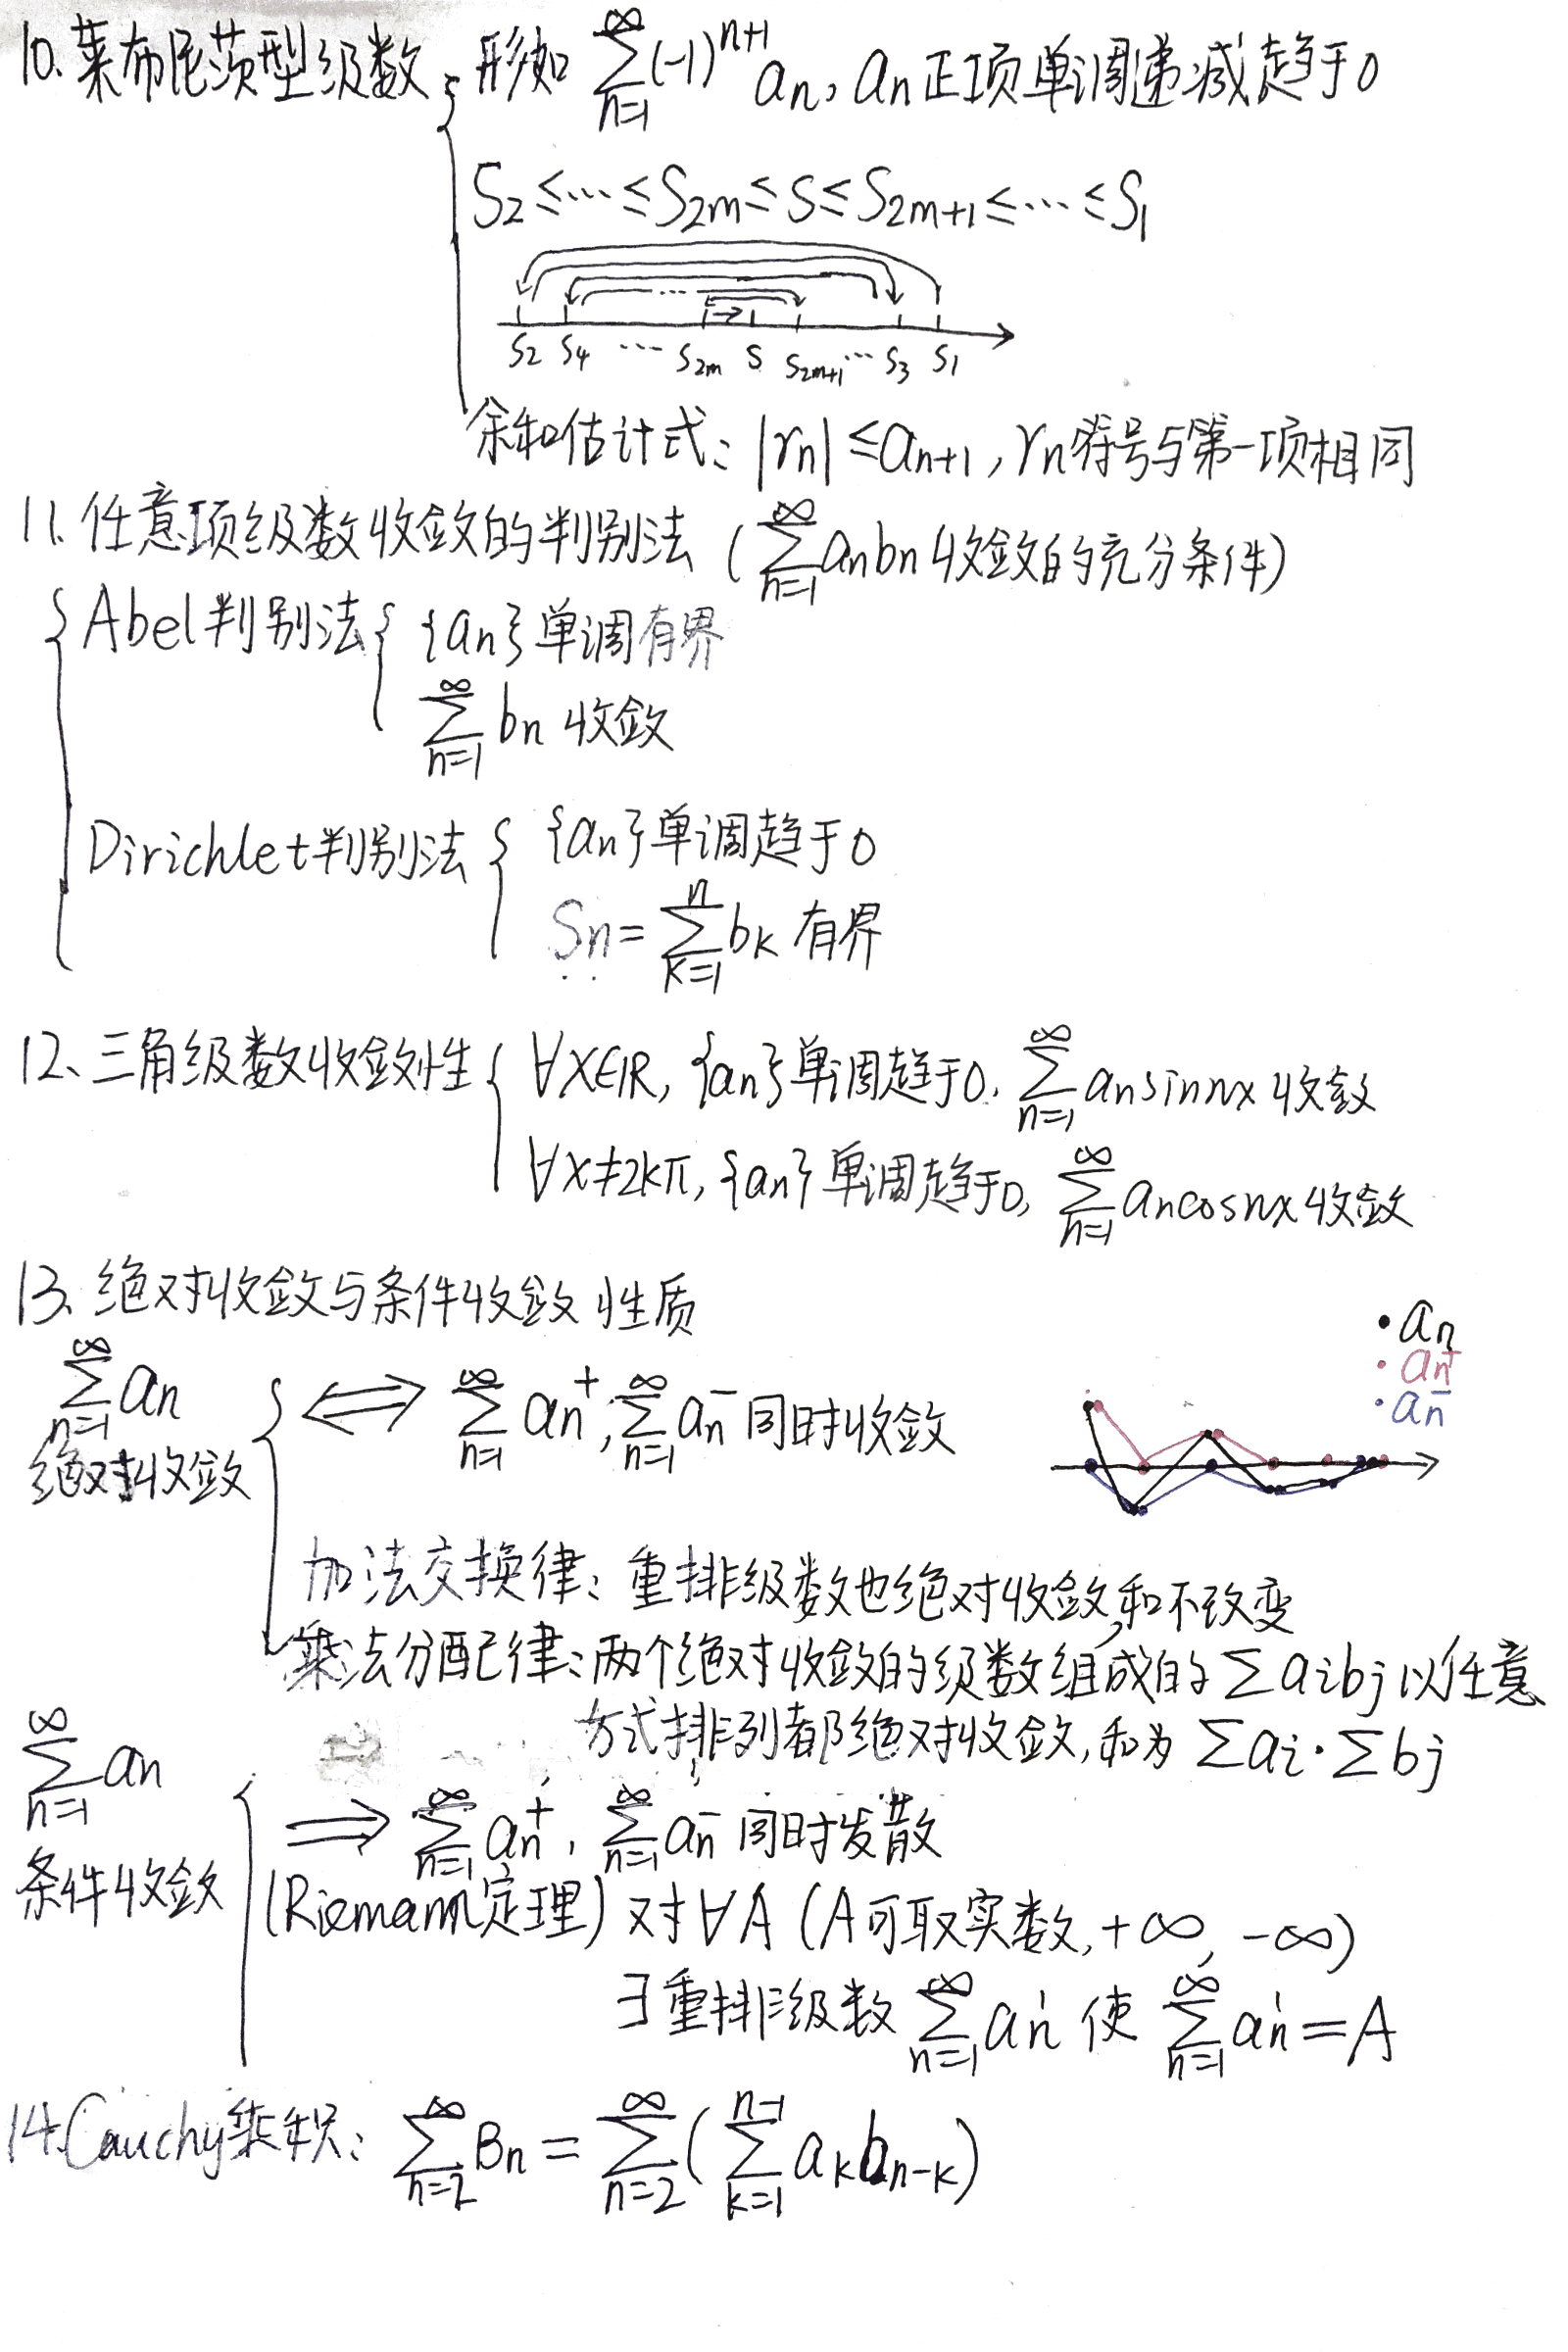 10. 莱布尼茨型级数 { 形如 ∑_{n=1}^{∞}(-1)^{n+1}a_n, a_n正项单调递减趋于0
S_2≤…≤S_{2m}≤S≤S_{2m+1}≤…≤S_1
…
S_2 S_4 … S_{2m} S S_{2m+1} … S_3 S_1
余和估计式: |r_n|≤a_{n+1}, r_n符号与第一项相同
11. 任意项级数收敛的判别法 (∑_{n=1}^{∞}a_nb_n收敛的充分条件)
{ Abel判别法 { {a_n}单调有界
∑_{n=1}^{∞}b_n 收敛
Dirichlet判别法 { {a_n}单调趋于0
S_n=∑_{k=1}^{n}b_k 有界
12、三角级数收敛性 { ∀x∈ℝ, {a_n}单调趋于0, ∑_{n=1}^{∞}a_n sin nx 收敛
∀x≠2kπ, {a_n}单调趋于0, ∑_{n=1}^{∞}a_n cos nx 收敛
13、绝对收敛与条件收敛性质
∑_{n=1}^{∞}a_n 绝对收敛 { ⟺ ∑_{n=1}^{∞}a_n^+, ∑_{n=1}^{∞}a_n^- 同时收敛
·a_n
·a_n^+
·a_n^-
加法交换律: 重排级数也绝对收敛,和不改变
乘法分配律: 两个绝对收敛的级数组成的∑a_ib_j以任意
方式排列都绝对收敛,和为∑a_i·∑b_j
∑_{n=1}^{∞}a_n 条件收敛 { ⟹ ∑_{n=1}^{∞}a_n^+, ∑_{n=1}^{∞}a_n^- 同时发散
(Riemann定理) 对∀A (A可取实数,+∞,-∞)
∃重排级数∑_{n=1}^{∞}a_n' 使 ∑_{n=1}^{∞}a_n'=A
14.Cauchy乘积: ∑_{n=2}^{∞}B_n=∑_{n=2}^{∞}(∑_{k=1}^{n-1}a_kb_{n-k})